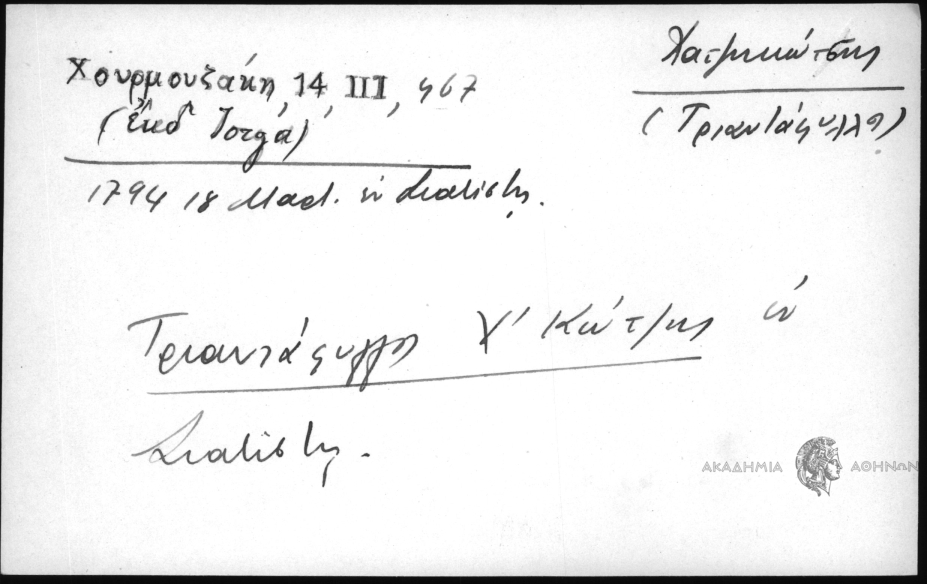 Χουρμουζάκη, 14, III, 467
(Ἐκδ Ιοrga)
Χατζηκώτσης
(Τριαντάφυλλο)
1794 18 Μαΐ. ἐν Σιατίστῃ.
Τριαντάφυλλος Χ' Κώτζης ἐν
Σιατίστῃ.
ΑΚΑΔΗΜΙΑ ΑΘΗΝΩΝ